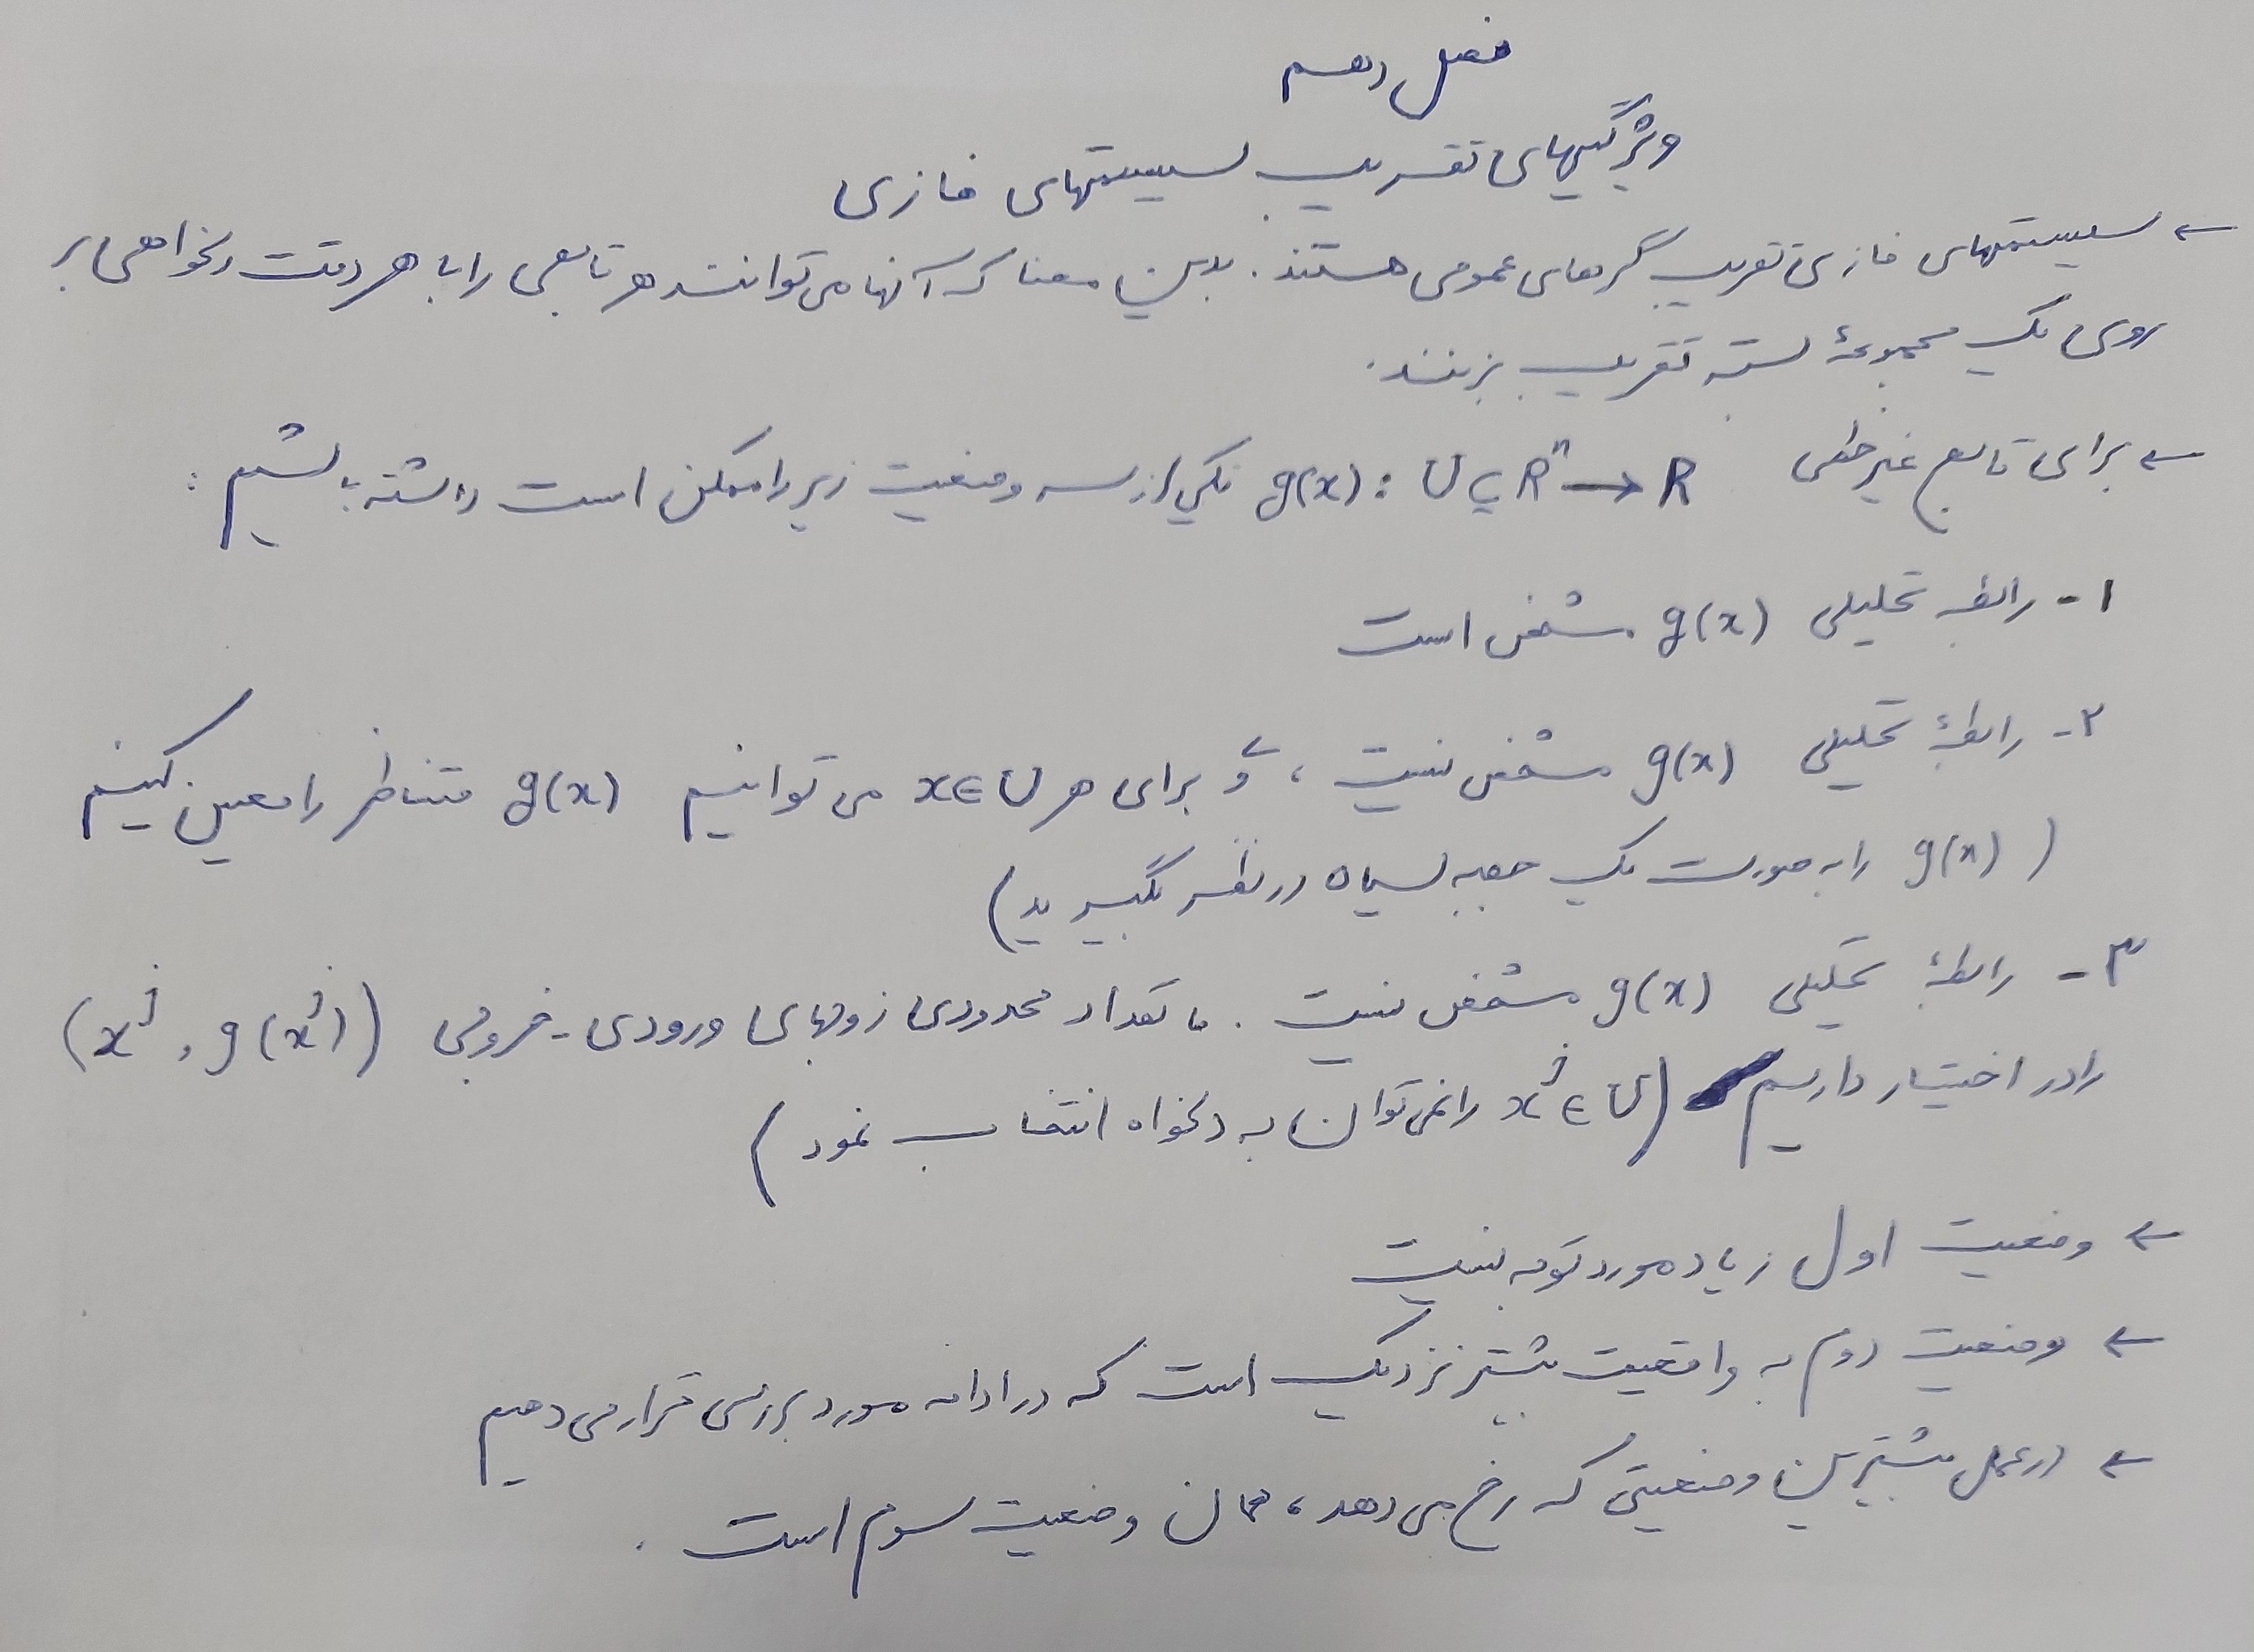 فصل دهم
ویژگیهای تقریب سیستمهای فازی
← سیستمهای فازی تقریب گرهای عمومی هستند. بدین معنا که آنها می توانند هر تابعی را با هر دقت دلخواهی بر
روی یک مجموعهٔ بسته تقریب بزنند.
← برای تابع غیرخطی g(x): U ⊆ Rⁿ → R یکی از سه وضعیت زیر را ممکن است داشته باشیم:
۱- رابطه تحلیلی g(x) مشخص است
۲- رابطهٔ تحلیلی g(x) مشخص نیست، برای هر x∈U می توانیم g(x) متناظر را معین کنیم
(g(x) را به صورت یک جعبه سیاه در نظر بگیرید)
۳- رابطهٔ تحلیلی g(x) مشخص نیست. ما تعداد محدودی زوجهای ورودی-خروجی (xʲ, g(xʲ))
را در اختیار داریم (xʲ∈U را نمی توان به دلخواه انتخاب نمود)
← وضعیت اول زیاد مورد توجه نیست
← وضعیت دوم به واقعیت بیشتر نزدیک است که در ادامه مورد بررسی قرار می دهیم
← در عمل بیشترین وضعیتی که رخ می دهد، همان وضعیت سوم است.